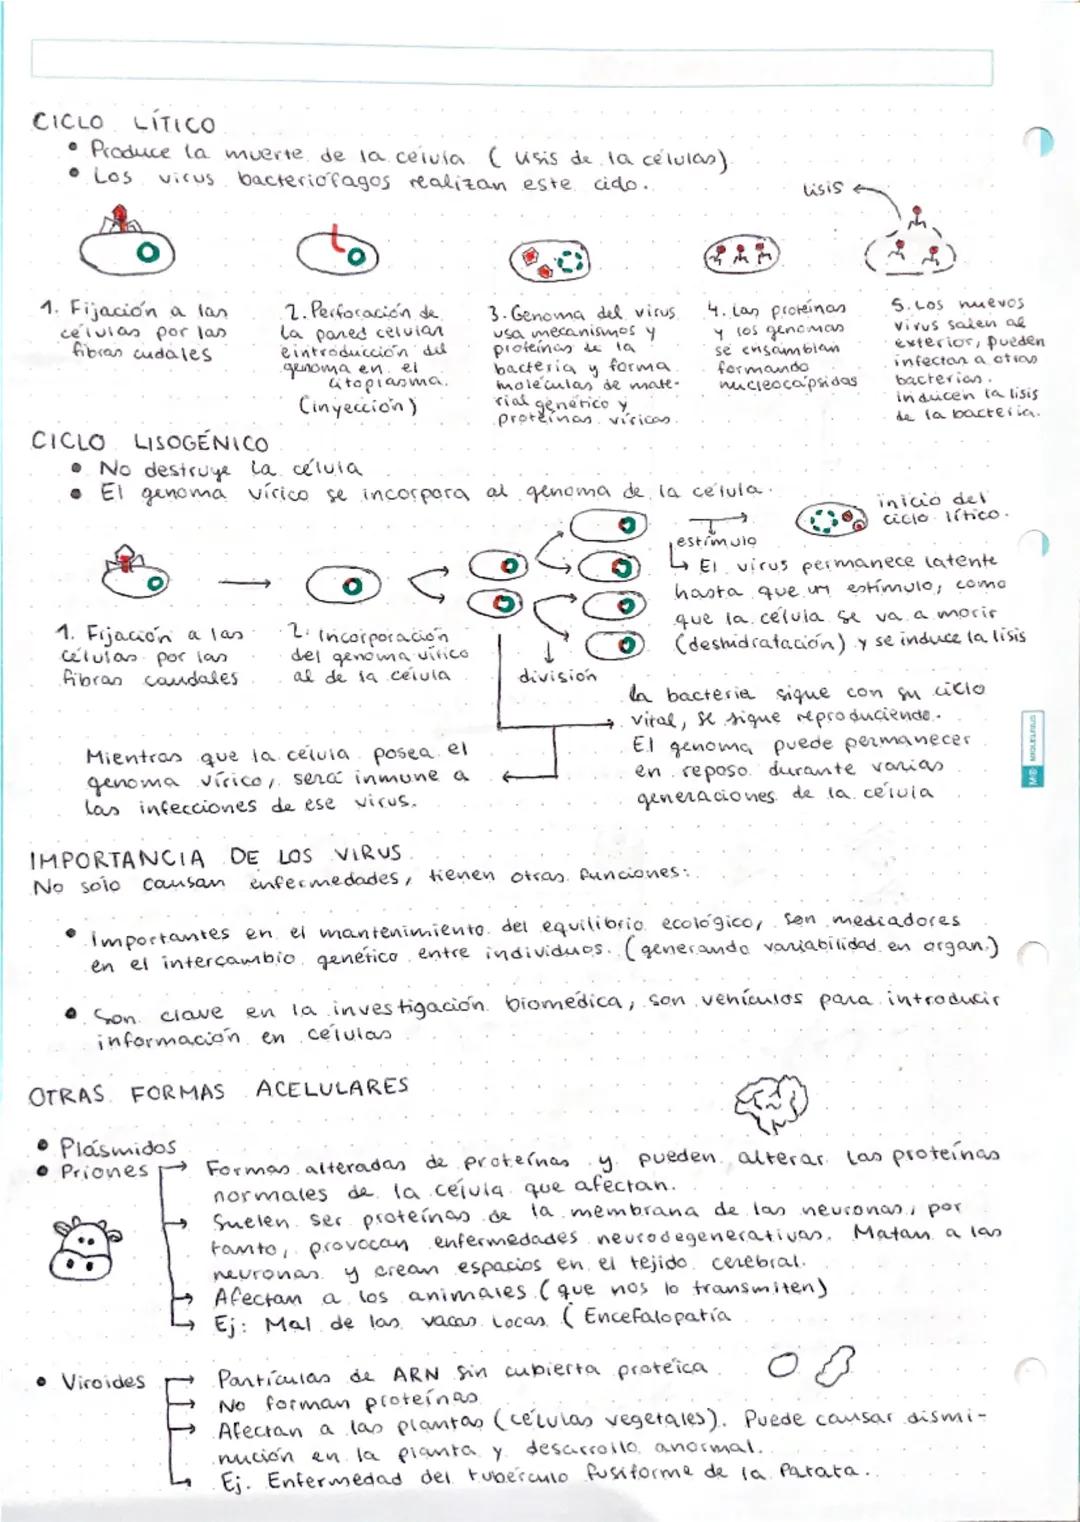 CICLO LÍTICO
• Produce la muerte de la célula (lisis de la células)
• Los virus bacteriófagos realizan este ciclo.
lisis
1. Fijación a las
células por las
fibras cudales
2. Perforación de
la pared celular
e introducción del
genoma en el
citoplasma.
(inyección)
3. Genoma del virus
usa mecanismos y
proteínas de la
bacteria y forma
moléculas de mate-
rial genético y
proteínas víricas.
4. Las proteínas
y los genomas
se ensamblan
formando
nucleocápsidas
5. Los nuevos
virus salen al
exterior, pueden
infectar a otras
bacterias.
inducen la lisis
de la bacteria.
CICLO LISOGÉNICO
• No destruye la célula
• El genoma vírico se incorpora al genoma de la célula.
inicio del
ciclo lítico.
estímulo
↳ El virus permanece latente
hasta que un estímulo, como
que la célula se va a morir
(deshidratación) y se induce la lisis
1. Fijación a las
células por las
fibras caudales
2. Incorporación
del genoma vírico
al de la célula
división
la bacteria sigue con su ciclo
vital, se sigue reproduciendo.
El genoma puede permanecer
en reposo durante varias
generaciones de la célula
Mientras que la célula posea el
genoma vírico, será inmune a
las infecciones de ese virus.
MIQUELRIUS
IMPORTANCIA DE LOS VIRUS
No solo causan enfermedades, tienen otras funciones:
• Importantes en el mantenimiento del equilibrio ecológico, son mediadores
en el intercambio genético entre individuos. (generando variabilidad en organ.)
• Son clave en la investigación biomédica, son vehículos para introducir
información en células
OTRAS FORMAS ACELULARES
• Plásmidos
• Priones → Formas alteradas de proteínas y pueden alterar las proteínas
normales de la célula que afectan.
→ Suelen ser proteínas de la membrana de las neuronas, por
tanto, provocan enfermedades neurodegenerativas. Matan a las
neuronas y crean espacios en el tejido cerebral.
→ Afectan a los animales (que nos lo transmiten)
↳ Ej: Mal de las vacas locas (Encefalopatía
• Viroides → Partículas de ARN sin cubierta proteica
→ No forman proteínas
→ Afectan a las plantas (células vegetales). Puede causar dismi-
nución en la planta y desarrollo anormal.
↳ Ej. Enfermedad del tubérculo fusiforme de la Patata.